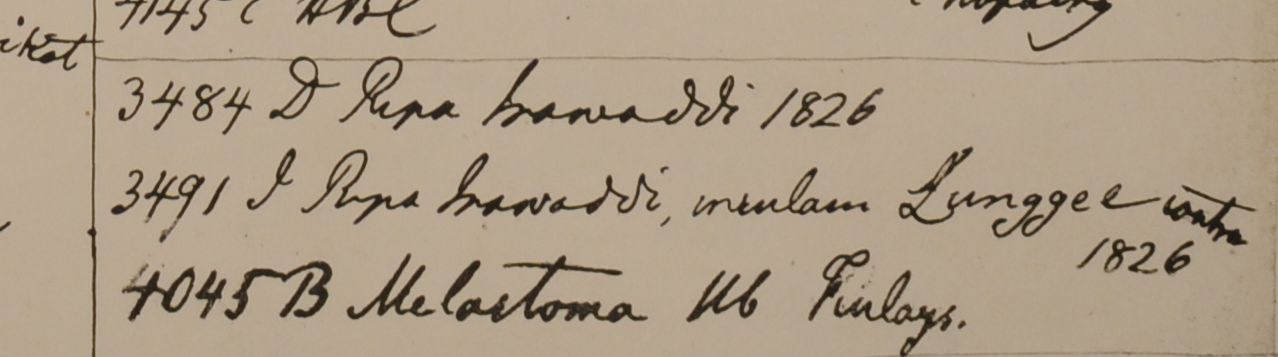 4145 C HBC
ikat
3484 D Ripa Irawaddi 1826
3491 I Ripa Irawaddi, insulam Lunggee contra
1826
4045 B Melastoma Hb Finlays.